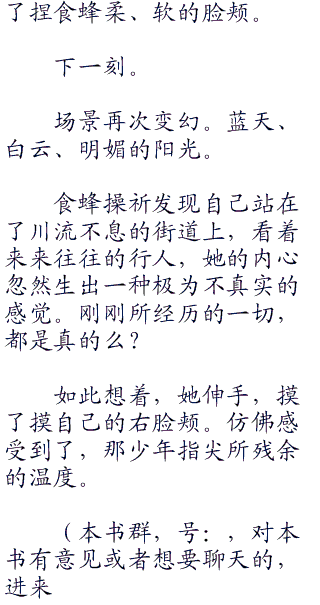 了捏食蜂柔、软的脸颊。
下一刻。
场景再次变幻。蓝天、
白云、明媚的阳光。
食蜂操祈发现自己站在
了川流不息的街道上，看着
来来往往的行人，她的内心
忽然生出一种极为不真实的
感觉。刚刚所经历的一切，
都是真的么？
如此想着，她伸手，摸
了摸自己的右脸颊。仿佛感
受到了，那少年指尖所残余
的温度。
（本书群，号：，对本
书有意见或者想要聊天的，
进来